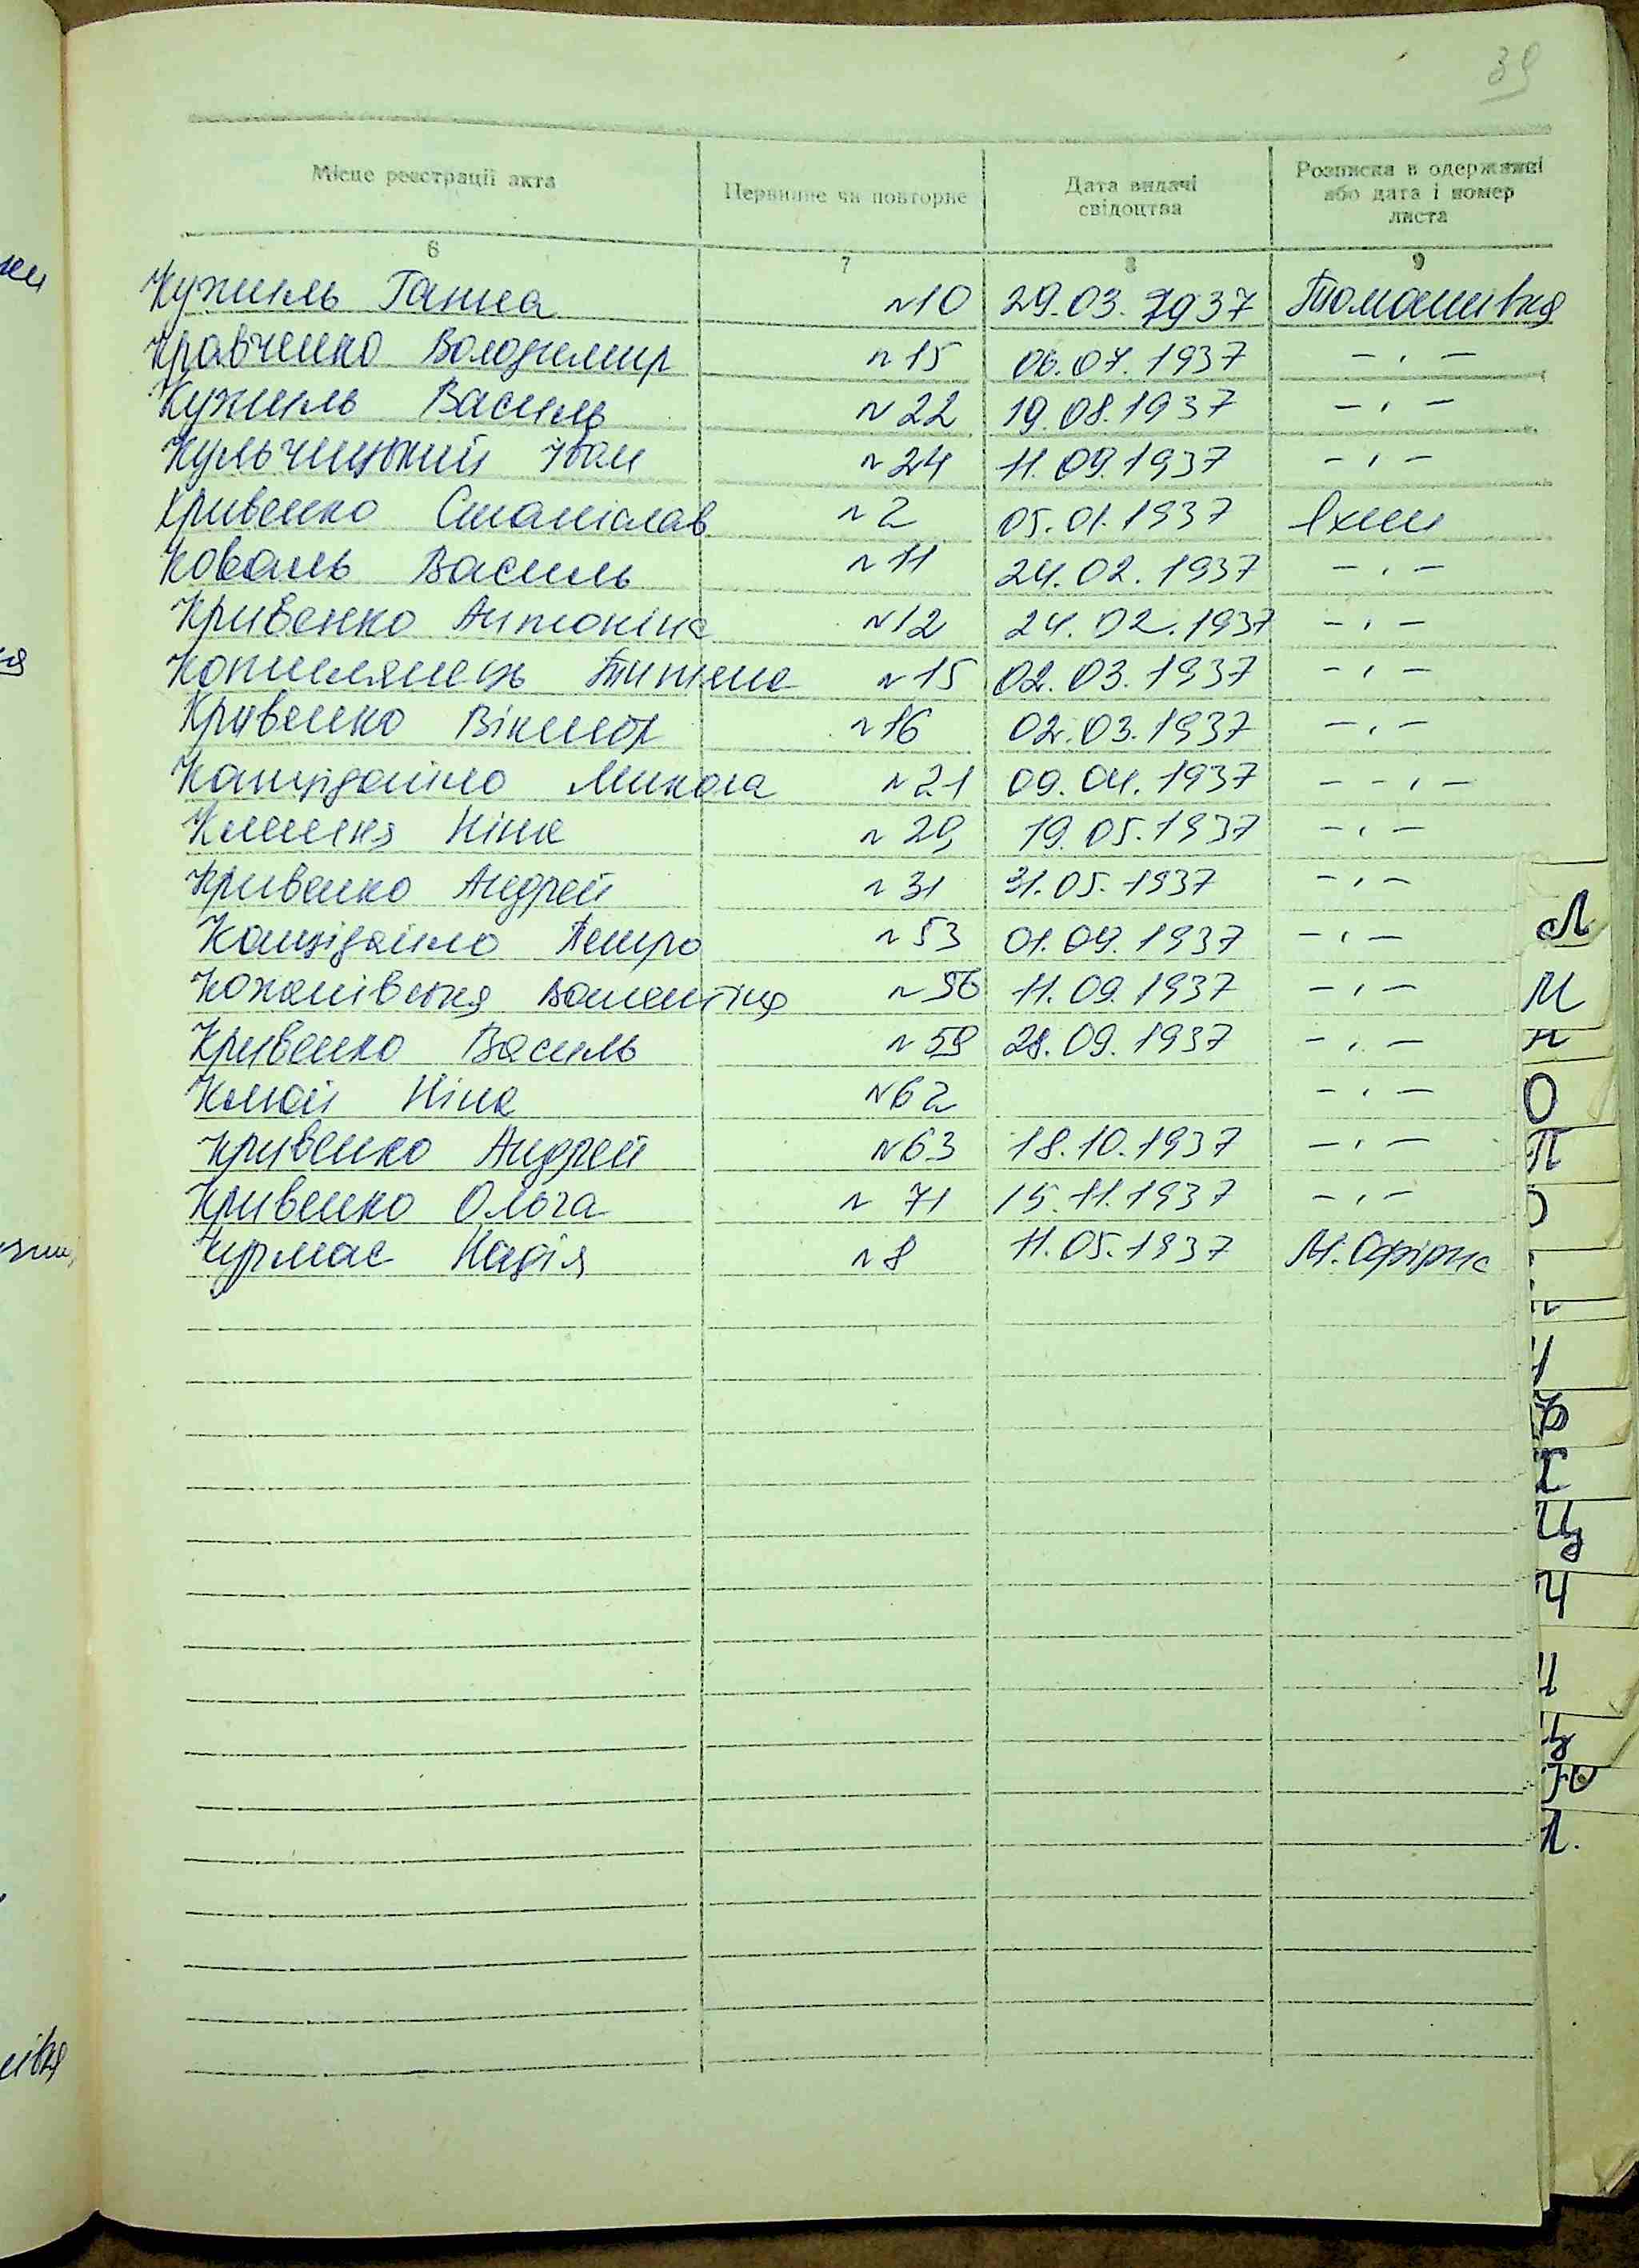 39
Місце реєстрації акта
Первинне чи повторне
Дата видачі
свідоцтва
Розписка в одержанні
або дата і номер
листа
6 7 8 9
Кужиль Ганна №10 29.03.1937 Томашівка
Кравченко Володимир №15 06.07.1937 - " -
Кужиль Василь №22 19.08.1937 - " -
Кульчицький Іван №24 11.09.1937 - " -
Кривенко Станіслав №2 05.01.1937 Яхни
Коваль Василь №11 24.02.1937 - " -
Кривенко Антоніна №12 24.02.1937 - " -
Копилянець Титяна №15 02.03.1937 - " -
Кривенко Віктор №16 02.03.1937 - " -
Канцідайло Микола №21 09.04.1937 - - " -
Ніна №29 19.05.1937 - " -
Кривенко Андрей №31 31.05.1937 - " -
Канцідайло Петро №53 01.09.1937 - " -
Кожанівська Валентина №56 11.09.1937 - " -
Кривенко Василь №59 28.09.1937 - " -
Ніна №62 - " -
Кривенко Андрей №63 18.10.1937 - " -
Кривенко Ольга №71 15.11.1937 - " -
Курмас Надія №8 11.05.1937 М.Офірна
Л
М
Н
О
П
Ц
Ч
Ю
Я.